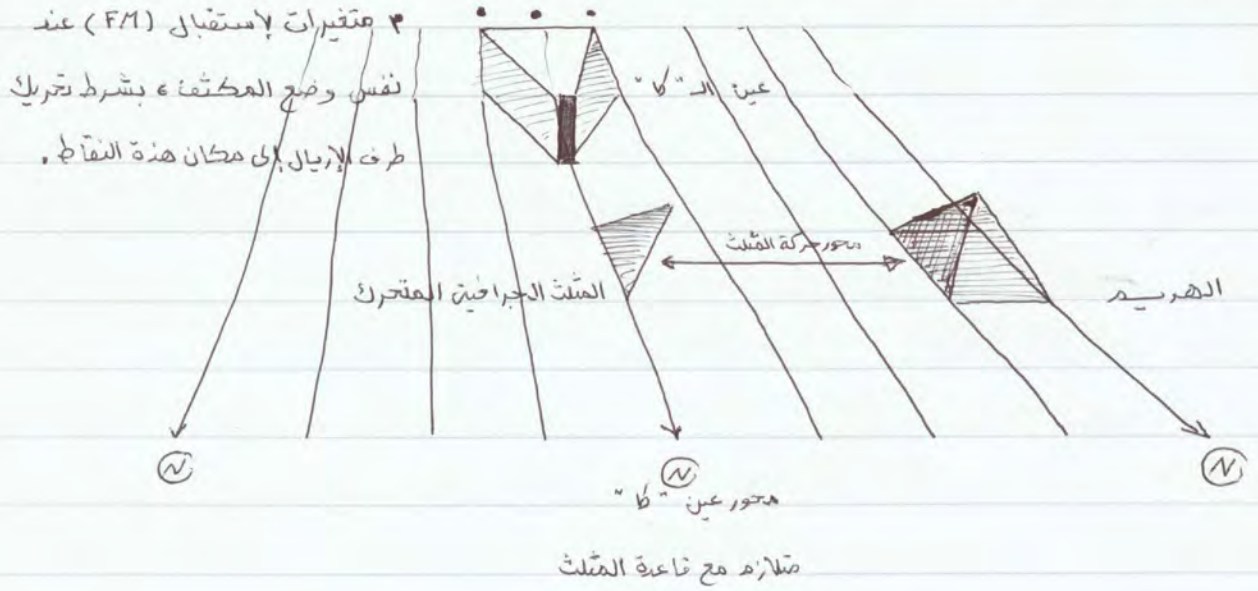 ٣ متغيرات لإستقبال (FM) عند
نفس وضع المكثف، بشرط تحريك
طرف الإريال إلى مكان هذة النقاط.
عين الـ "كا"
محور حركة المثلث
المثلث الجرافيتى المتحرك
الهريم
N
N
N
محور عين "كا"
متلازم مع قاعدة المثلث